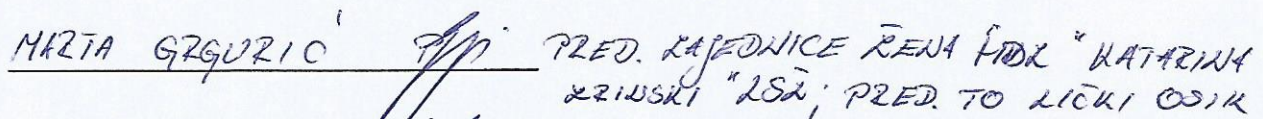 MARTA GRGURIĆ PRED. ZAJEDNICE ŽENA HDZ "KATARINA
ZRINSKI" LSŽ; PRED. TO LIČKI OSIK